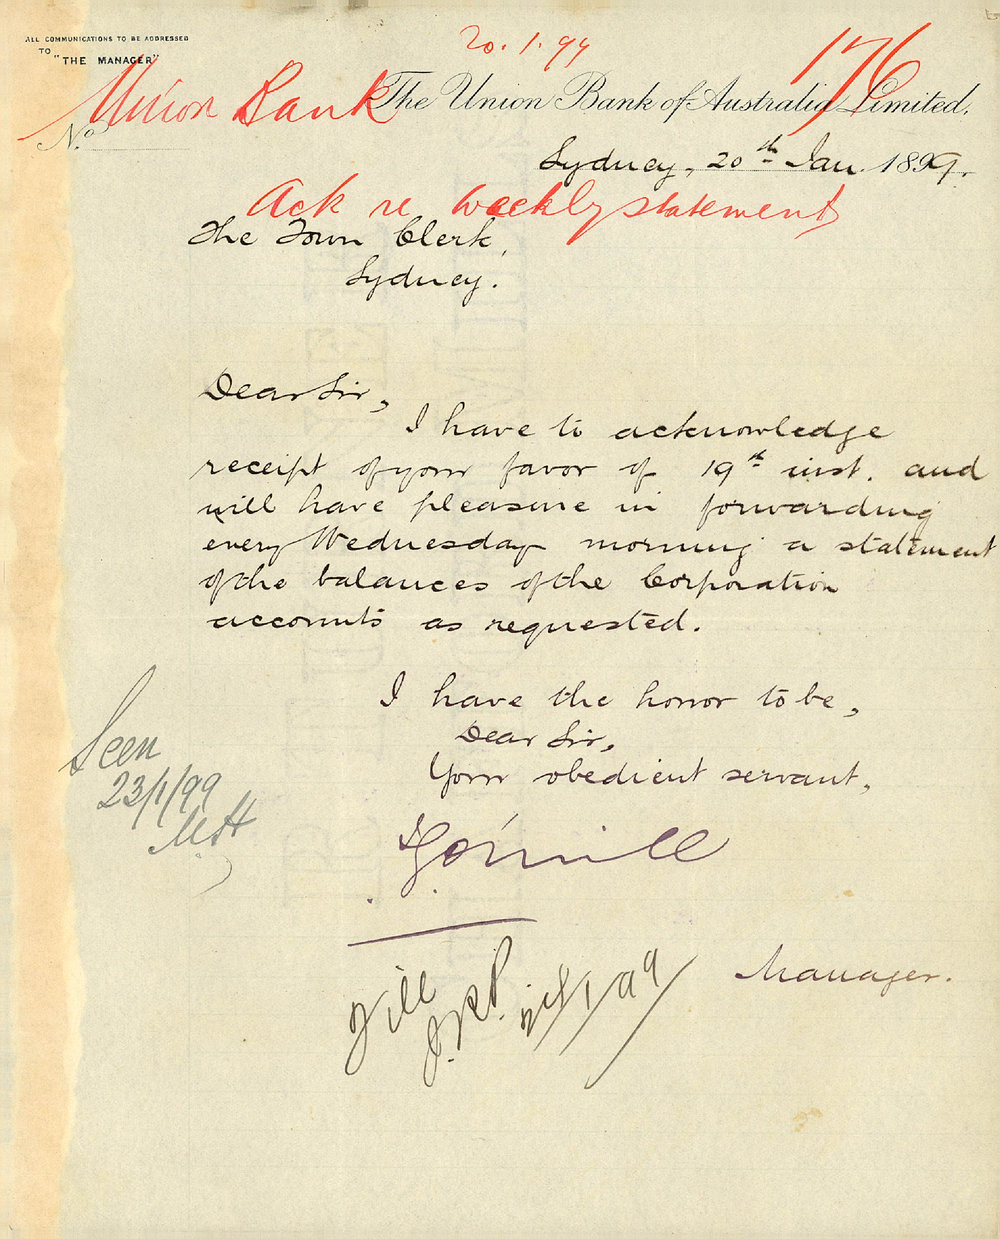 ALL COMMUNICATIONS TO BE ADDRESSED
TO
"THE MANAGER"
20.1.99
176
Union Bank
The Union Bank of Australia Limited.
No.
Sydney, 20th Jan. 1899.
Ack re weekly statement
The Town Clerk,
Sydney.
Dear Sir,
I have to acknowledge
receipt of your favor of 19th inst. and
will have pleasure in forwarding
every Wednesday morning a statement
of the balances of the Corporation
accounts as requested.
I have the honor to be,
Dear Sir,
Your obedient servant,
Manager.
Seen
23/1/99